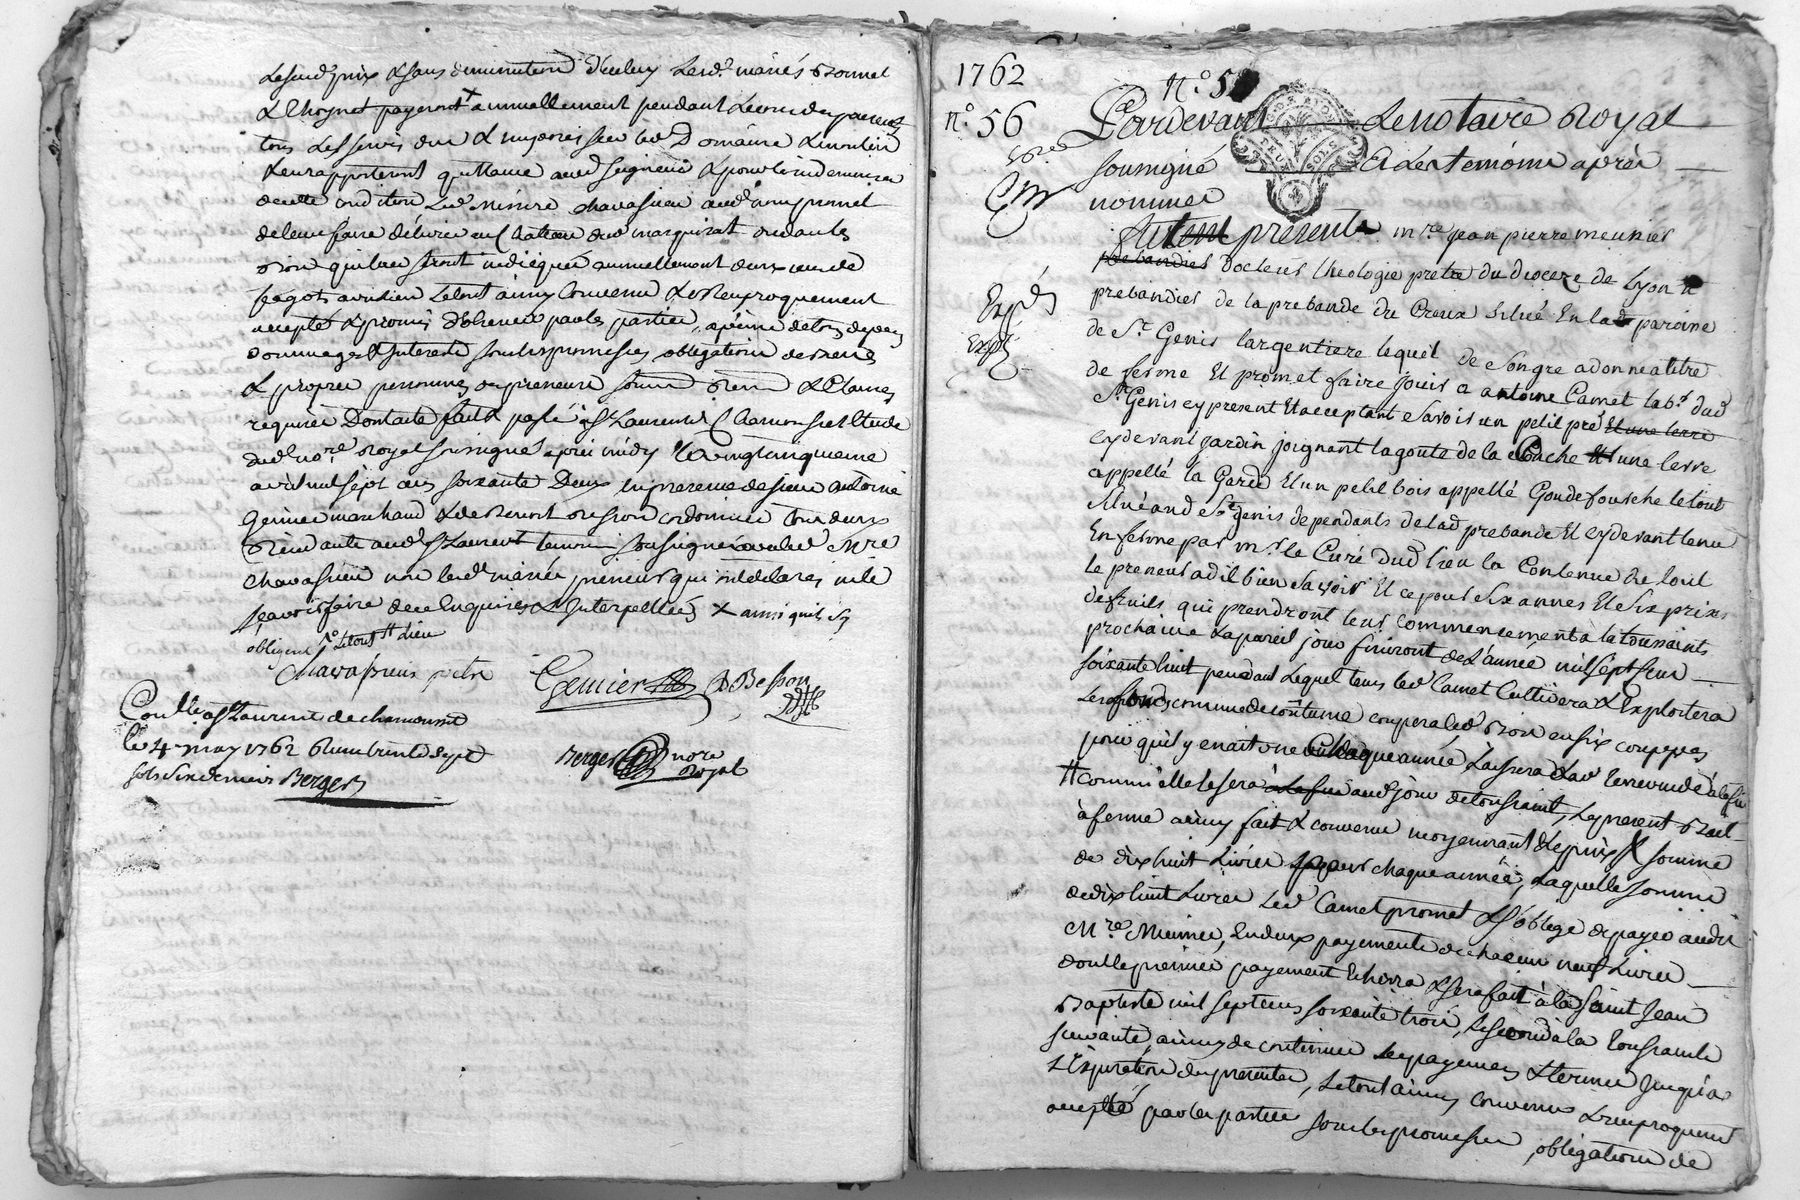 Lesud. prix & sans diminution d'iceluy Lesd. mariés Bonnet
payeront + annuellement pendant le cours du present
tous Les servis dus & imposés sur led. Domaine & moulin
& en rapporteront quittance aud. Seigneur & pour l'indemniser
de cette condition Led. Messire Chavassieu
de leur faire délivrer au Chateau dud. marquisat
Bois qui leur seront indiqués annuellement deux cens de
fagots Le tout ainsy Convenu & Reciproquement
accepté & promis d'observer par les parties, a peine de tous depens
dommages & Interests sous les promesses, obligations de biens
& propres personnes des preneurs & Clauses
requises Dont acte fait & passé a St Laurent de Chamousset Etude
dud. no.re Royal soussigné apres midy le vingtcinquieme
avril mil sept cens soixante Deux En presence de sieur Antoine
Genier marchand & de Benoit Besson cordonnier tous deux
Residants aud. St Laurent temoins soussignés avec led. M.re
Chavassieu non lesd. mariés preneurs qui ont declaré ne le
sçavoir faire de ce Enquis & Interpellés X ainsi qu'ils s'y
obligent
Chavassieu pretre Genier B Besson
Conllé a St Laurent de chamousset
le 4 may 1762 Reçu trente sept
sols six deniers Berger
Berger no.re
Royal
1762
n.° 56
n.° 5
Pardevant Le notaire Royal
soussigné Et des temoins apres
nommes
Expéd
Exp
fut present m.re jean pierre meunier
prebandies docteur theologie pretre du dioceze de Lyon et
prebandier de la prebande du Creux situé En lad. paroisse
de St. Genis largentiere lequel de son gre a donné a titre
de ferme Et promet faire jouir a antoine Camet lab.r dud.
St. Genis cy present Et acceptant Savoir un petit pré Et une terre
cy devant jardin joignant la goute de la Couche Et une terre
appellé la Garde Et un petit bois appellé Goudefousche le tout
situé aud. St. genis dependants de lad. prebande Et cy devant tenu
En ferme par m.r le Curé dud. lieu la Contenue de tout
le preneur a dit bien Savoir Et ce pour Six annees Et Six prix
de fruits qui prendront leur commencement a la toussaints
prochaine & a pareil jour finiront de L'année mil sept cens
soixante huit pendant lequel tems led. Camet Cultivera & Exploitera
Les fonds comme de coûtume coupera led. Bois en six coupes
pour qu'il y en ait une chaque année Laissera lad. terre vuide à la fin
# comm'elle le sera à la fin aud. jour de toussaint, Le present Bail
à ferme ainsy fait & convenu moyennant Le prix & somme
de dix huit Livres chaque année, Laquelle somme
de dix huit Livres Led. Camet promet & s'oblige de payer audit
M.re Meunier, En deux payements de chacun neuf Livres
dont le premier payement Echerra & sera fait à la Saint Jean
Baptiste mil sept cens soixante trois, Le second à la Toussaint
suivante, ainsy de continuer Les payemens & termes jusqu'à
L'Expiration du present, Le tout ainsy convenu & reciproquement
accepté par les parties sous les promesses, obligations de